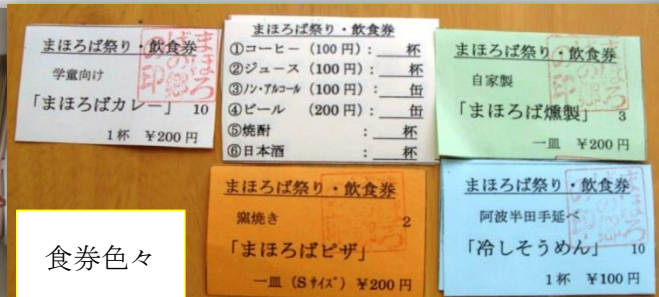 まほろば祭り・飲食券
学童向け
「まほろばカレー」 10
1杯 ¥200円
まほろばの郷の印
まほろば祭り・飲食券
①コーヒー (100円): 杯
②ジュース (100円): 杯
③ノン・アルコール (100円): 缶
④ビール (200円): 缶
⑤焼酎 : 杯
⑥日本酒 : 杯
まほろば祭り・飲食券
自家製
「まほろば燻製」 3
一皿 ¥200円
まほろば祭り・飲食券
窯焼き 2
「まほろばピザ」
一皿 (Sサイズ) ¥200円
まほろば祭り・飲食券
阿波半田手延べ
「冷しそうめん」 10
1杯 ¥100円
食券色々